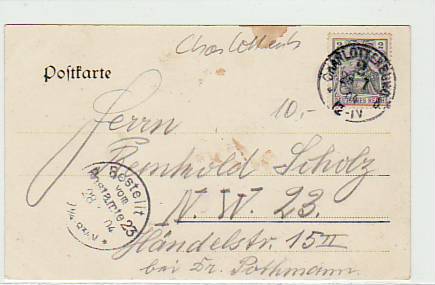 Charlottenb
Postkarte
CHARLOTTENBURG
2
2
DEUTSCHES REICH
10,-
Herrn
Reinhold Scholz
N. W. 23.
Händelstr. 15 II
bei Dr. Pothmann
Bestellt
vom
Postamte 23
28. 04